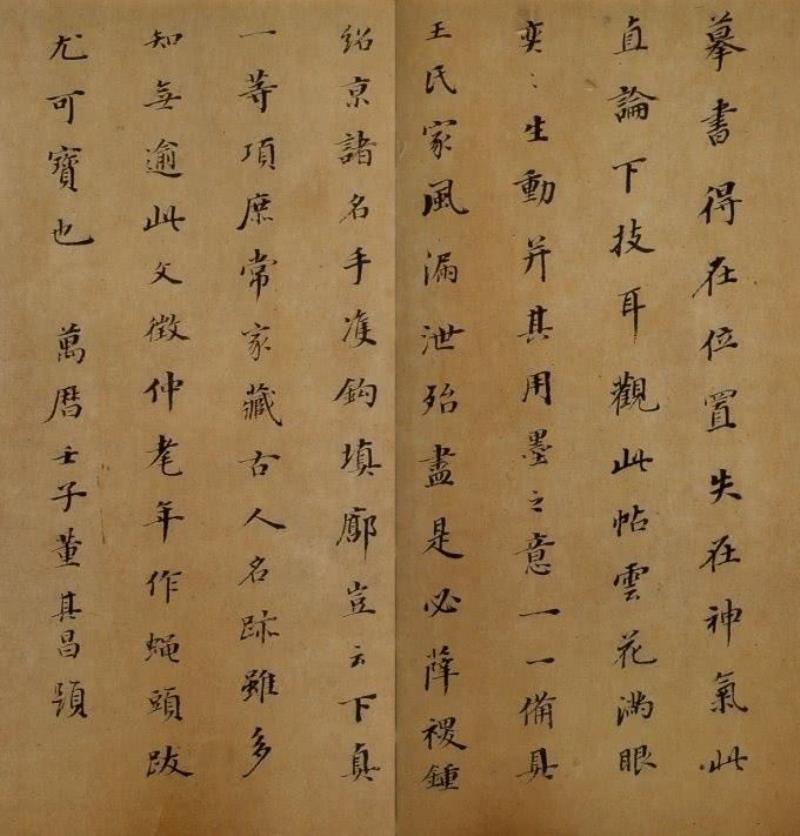 摹書得在位置失在神氣此
直論下技耳觀此帖雲花滿眼
奕〻生動并其用墨之意一一備具
王氏家風漏泄殆盡是必薛稷鍾
紹京諸名手雙鈎填廓豈云下真
一等項庶常家藏古人名跡雖多
知無逾此文徵仲耄年作蝇頭跋
尤可寶也 萬曆壬子董其昌題